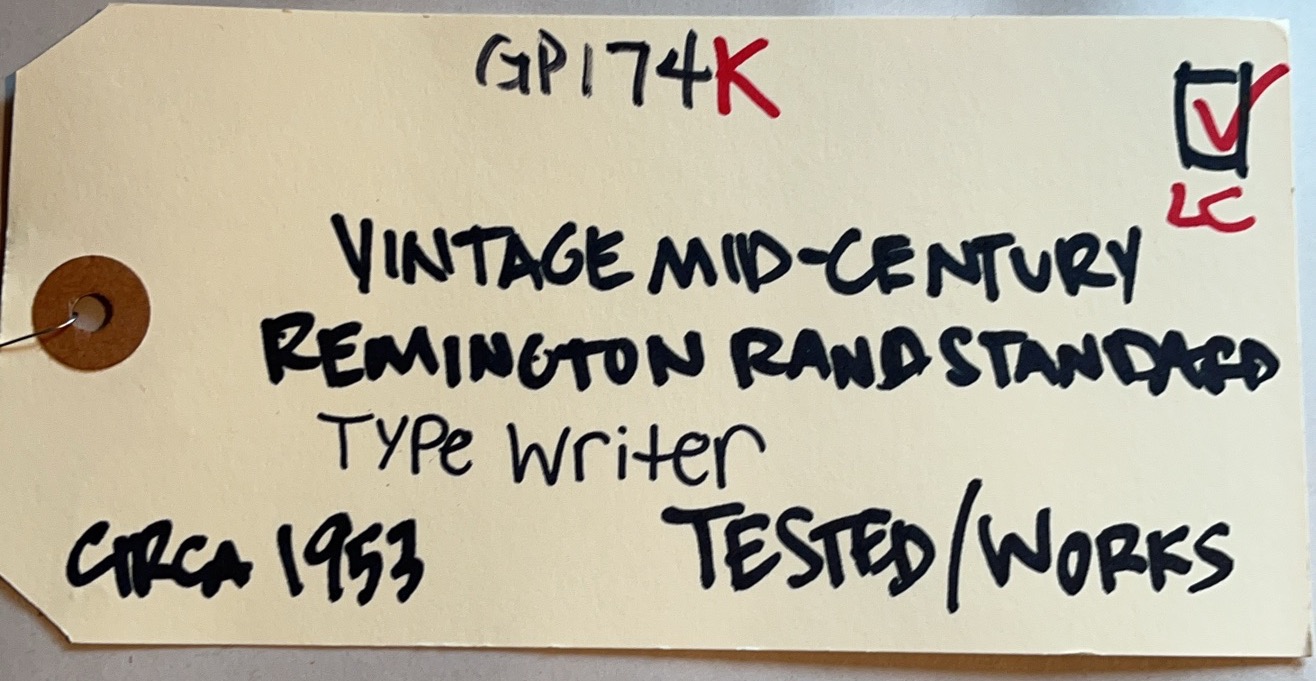 GP174K
LC
VINTAGE MID-CENTURY
REMINGTON RAND STANDARD
TYPe Writer
CIRCA 1953 TESTED/WORKS